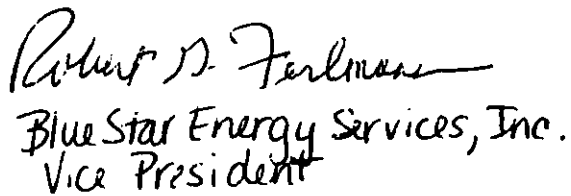 Robert G.
BlueStar Energy Services, Inc.
Vice President